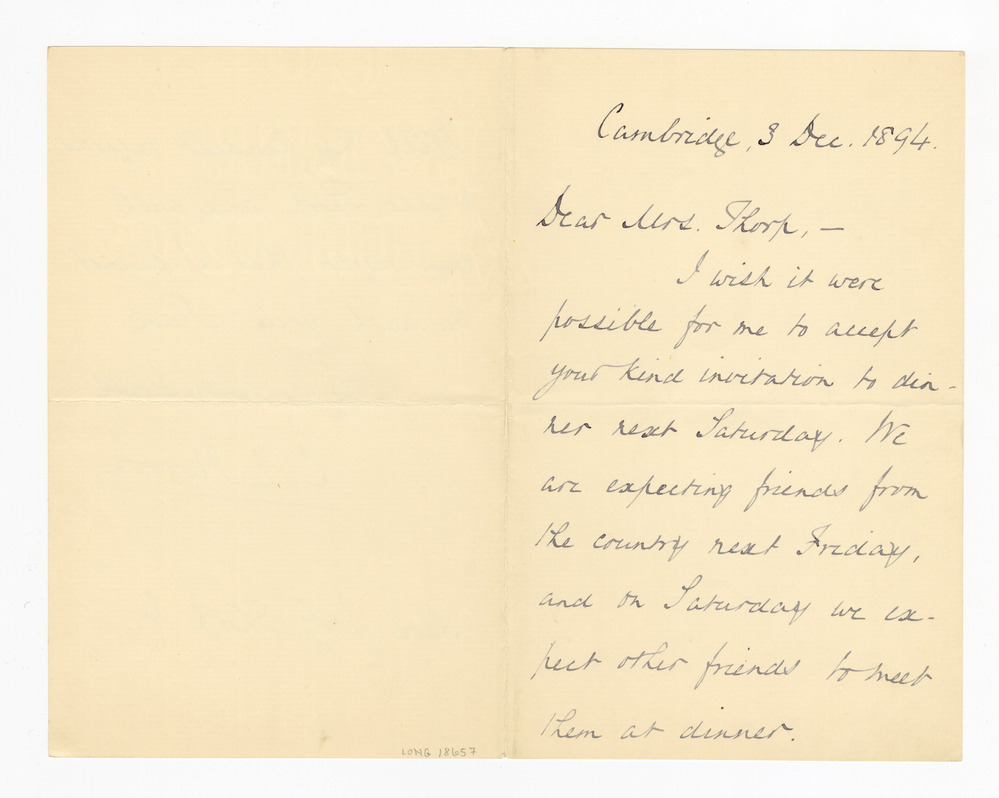 Cambridge, 3 Dec. 1894.
Dear Mrs. Thorp, —
I wish it were
possible for me to accept
your kind invitation to din-
ner next Saturday. We
are expecting friends from
the country next Friday,
and on Saturday we ex-
pect other friends to meet
them at dinner.
LONG 18657